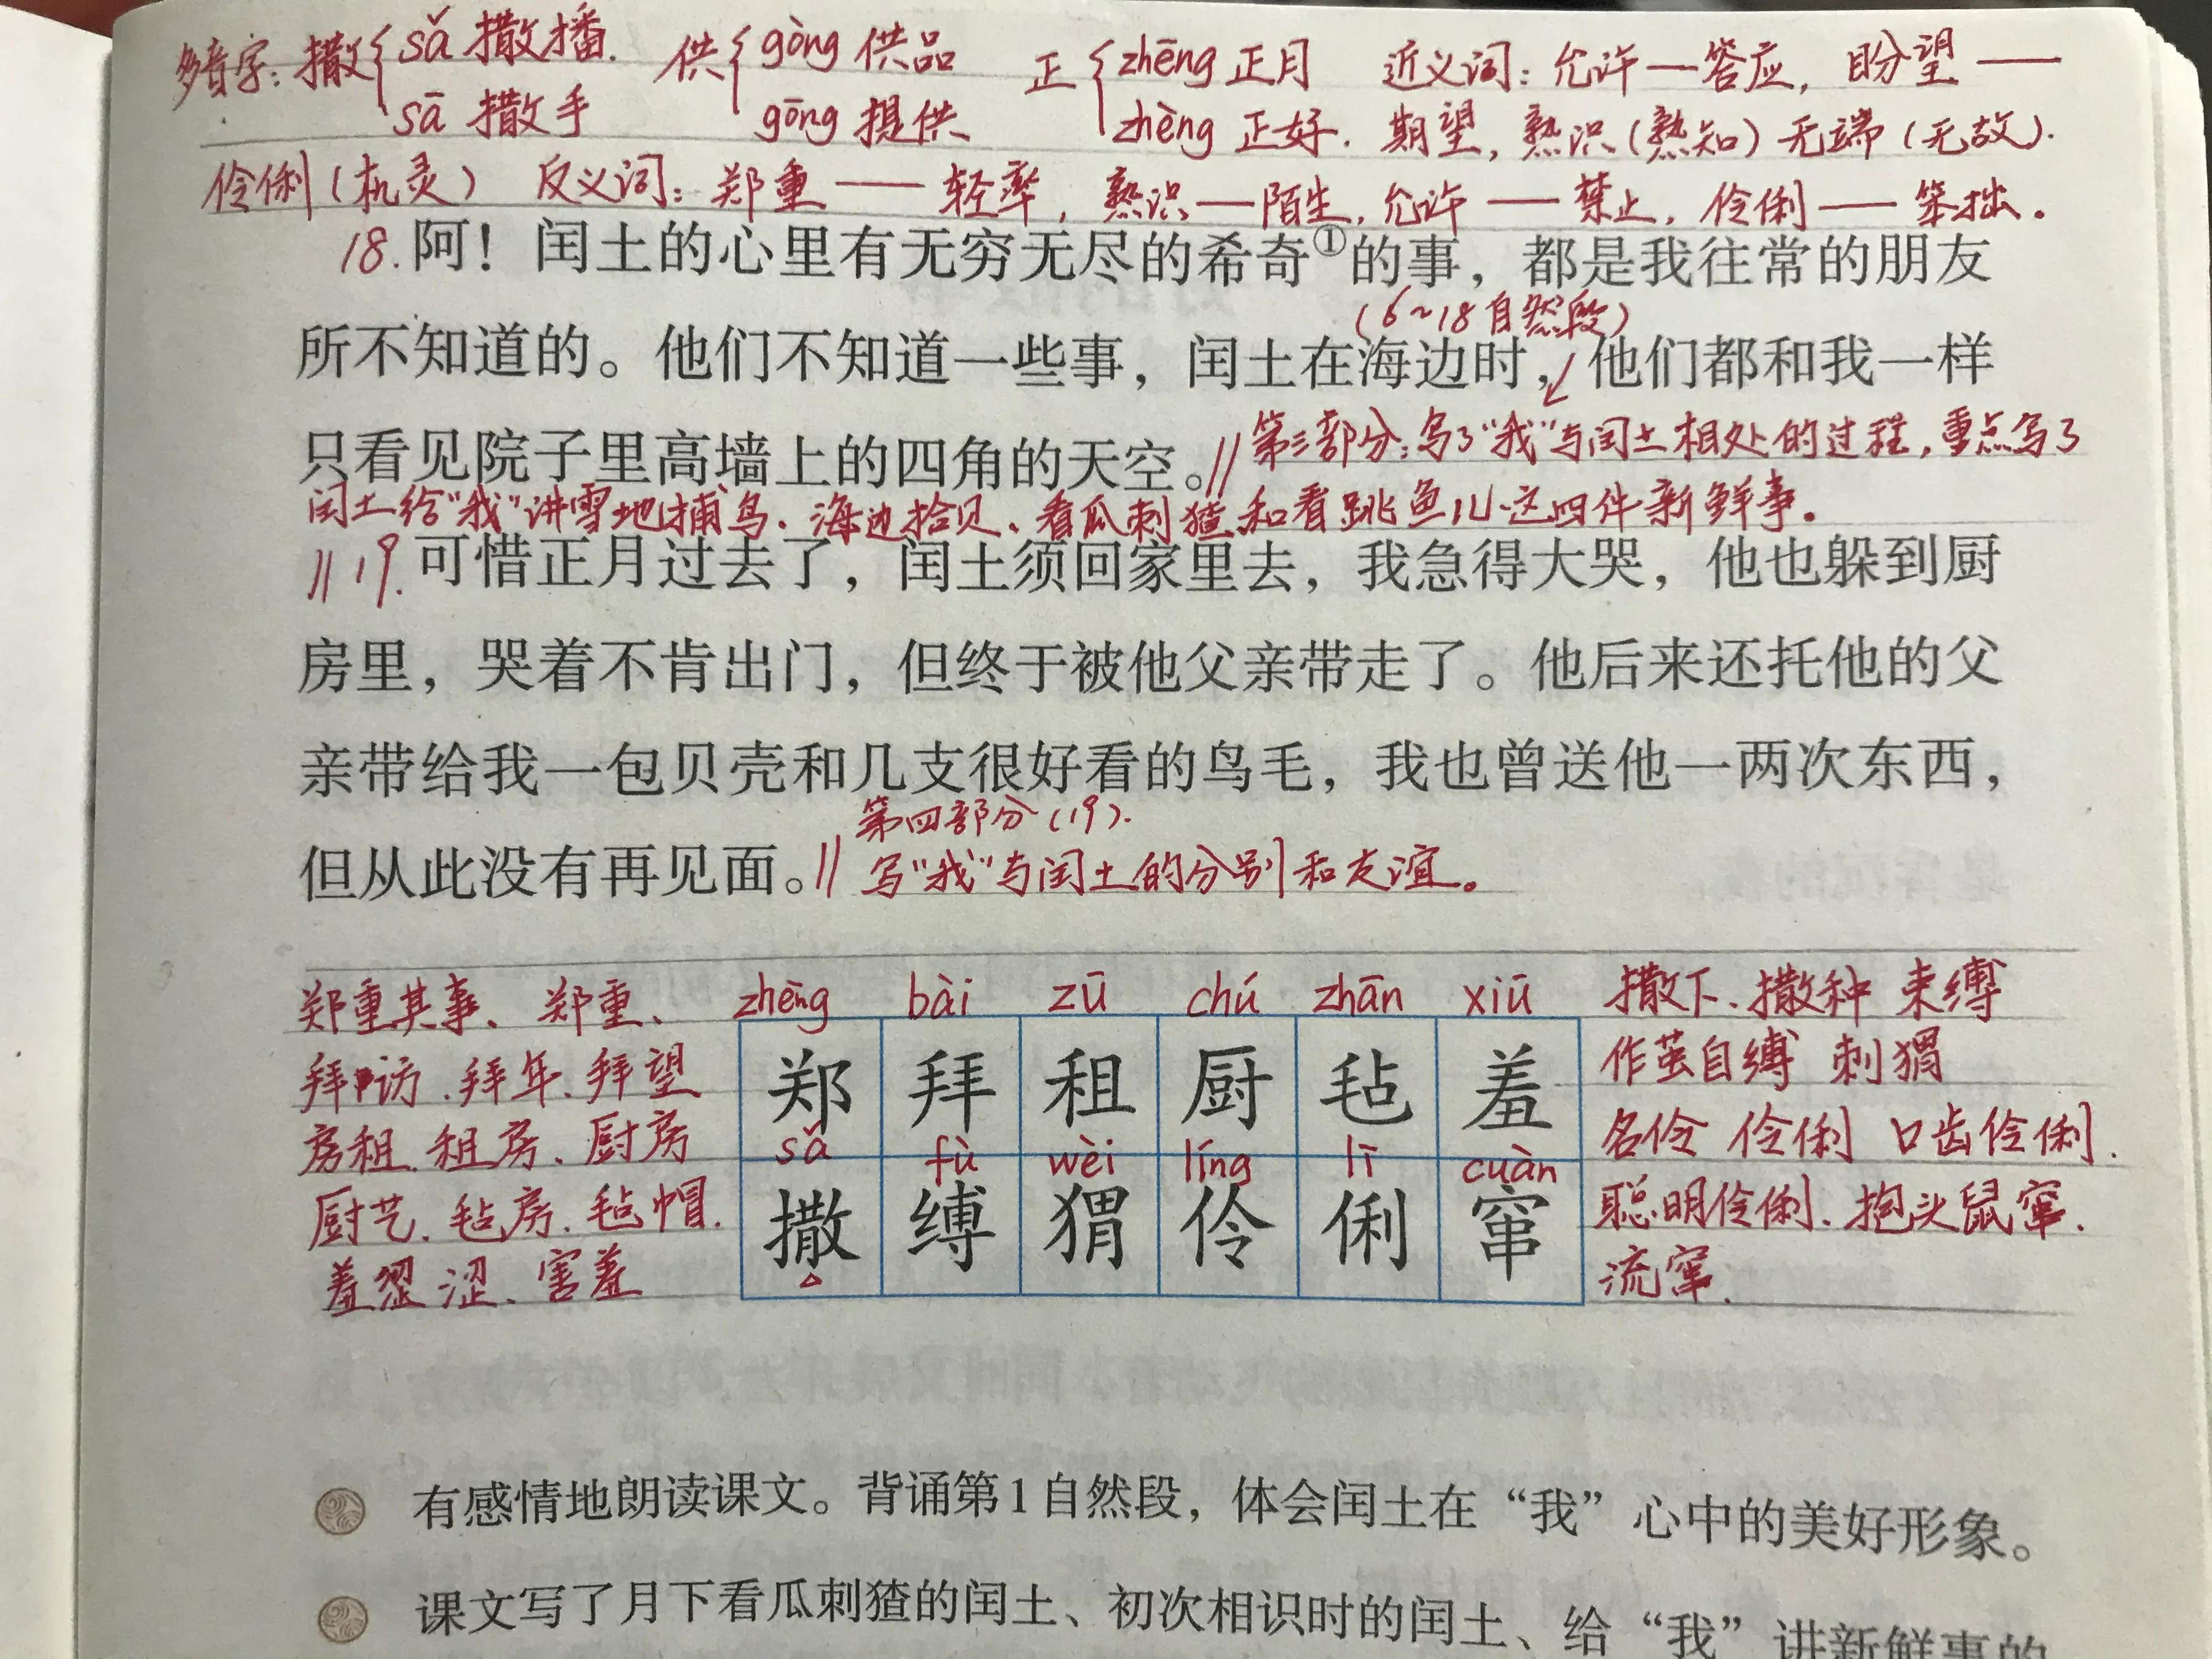 多音字：撒{sǎ 撒播. 供{gòng 供品 正{zhēng 正月 近义词：允许—答应，盼望——
sā 撒手 gōng 提供 zhèng 正好. 期望，熟识(熟知) 无端(无故).
伶俐(机灵) 反义词：郑重——轻率，熟识—陌生，允许——禁止，伶俐——笨拙。
18.阿！闰土的心里有无穷无尽的希奇①的事，都是我往常的朋友
(6~18自然段)
所不知道的。他们不知道一些事，闰土在海边时，他们都和我一样
只看见院子里高墙上的四角的天空。//第三部分：写了“我”与闰土相处的过程，重点写了
闰土给“我”讲雪地捕鸟、海边拾贝、看瓜刺猹和看跳鱼儿这四件新鲜事。
//19.可惜正月过去了，闰土须回家里去，我急得大哭，他也躲到厨
房里，哭着不肯出门，但终于被他父亲带走了。他后来还托他的父
亲带给我一包贝壳和几支很好看的鸟毛，我也曾送他一两次东西，
第四部分(19).
但从此没有再见面。//写“我”与闰土的分别和友谊。
郑重其事、郑重、 zhēng bài zū chú zhān xiū 撒下、撒种 束缚
拜访.拜年.拜望 郑 拜 租 厨 毡 羞 作茧自缚 刺猬
房租.租房、厨房 sǎ fù wèi líng lī cuàn 名伶 伶俐 口齿伶俐.
厨艺.毡房.毡帽. 撒 缚 猬 伶 俐 窜 聪明伶俐.抱头鼠窜.
羞涩 涩、害羞 流窜.
有感情地朗读课文。背诵第1自然段，体会闰土在“我”心中的美好形象。
课文写了月下看瓜刺猹的闰土、初次相识时的闰土、给“我”讲新鲜事的